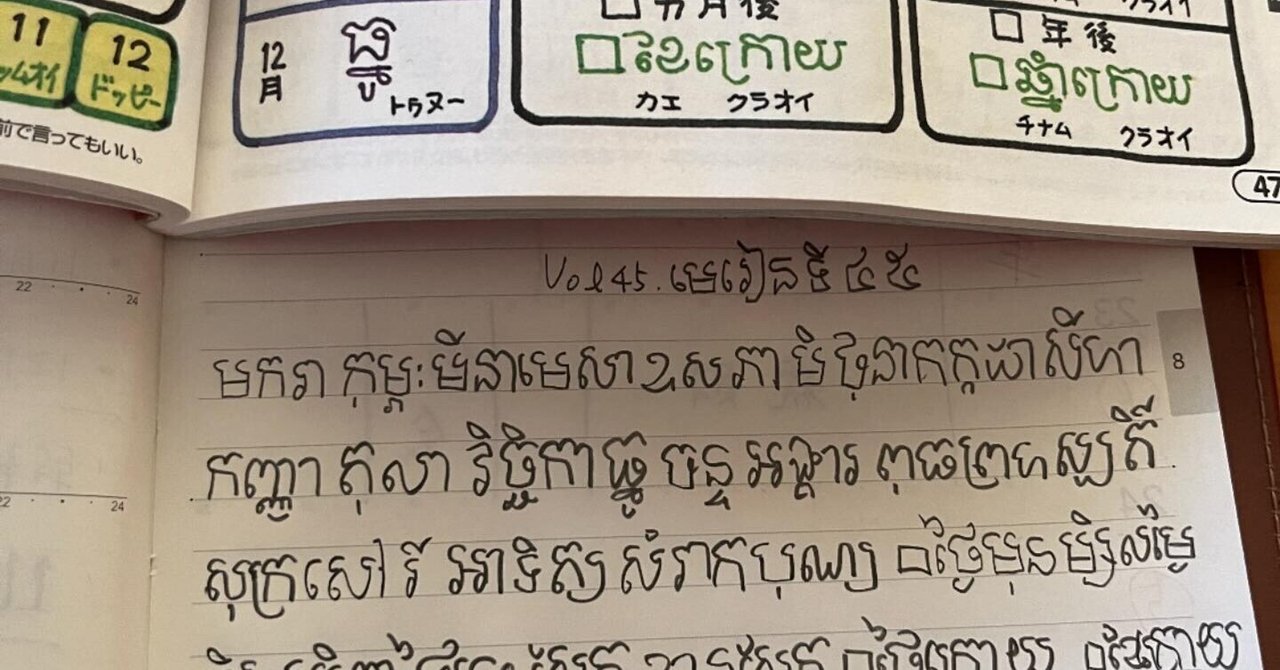 11
12
ドッピー
前で言ってもいい。
12月
ធ្នូ
トゥヌー
□カ月後
□ខែក្រោយ
カエ クラオイ
クラオイ
□年後
□ឆ្នាំក្រោយ
チナム クラオイ
47
22
24
22
24
8
Vol 45. មេរៀនទី ៤៥
មករា កុម្ភៈ មីនា មេសា ឧសភា មិថុនា កក្កដា សីហា
កញ្ញា តុលា វិច្ឆិកា ធ្នូ ចន្ទ អង្គារ ពុធ ព្រហស្បតិ៍
សុក្រ សៅរ៍ អាទិត្យ សំរាកបុណ្យ □ថ្ងៃមុន ម្សិលម៉ៃ